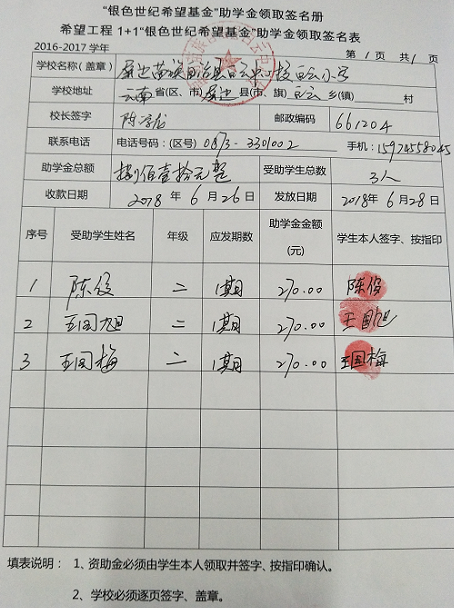 “银色世纪希望基金”助学金领取签名册
希望工程 1+1“银色世纪希望基金”助学金领取签名表
2016-2017 学年 第 1 页 共 1 页
学校名称(盖章) 屏边苗族自治县白云中心校白云小学
学校地址 云南 省(区、市) 屏边 县(市、旗) 白云 乡(镇) 村
校长签字 邮政编码 661204
联系电话 电话号码:(区号) 0873-3301002 手机: 15974558045
助学金总额 捌佰壹拾元整 受助学生总数 3人
收款日期 2018 年 6 月 26 日 发放日期 2018 年 6 月 28 日
序号 受助学生姓名 年级 应发期数 助学金金额 (元) 学生本人签字、按指印
1 陈俊 二 1期 270.00 陈俊
2 王国旭 二 1期 270.00 王国旭
3 王国梅 二 1期 270.00 王国梅
填表说明: 1、资助金必须由学生本人领取并签字、按指印确认。
2、学校必须逐页签字、盖章。